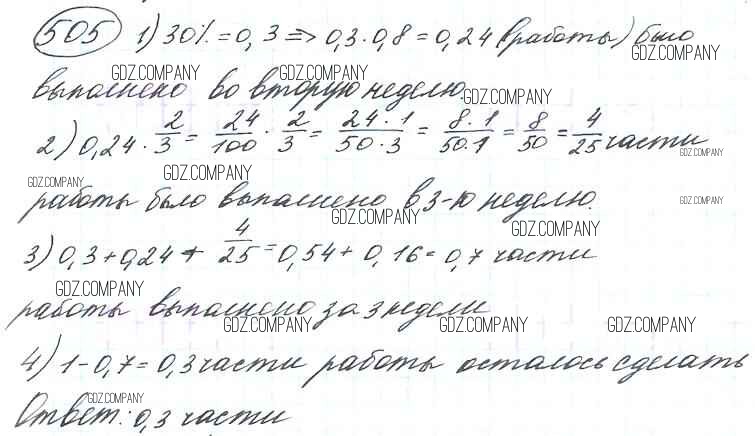 505 1) 30% = 0,3 => 0,3·0,8 = 0,24 (работы) было
GDZ.COMPANY GDZ.COMPANY GDZ.COMPANY
выполнено во вторую неделю.
GDZ.COMPANY
2) 0,24 · 2/3 = 24/100 · 2/3 = 24·1/50·3 = 8·1/50·1 = 8/50 = 4/25 части
GDZ.COMPANY
GDZ.COMPANY GDZ.COMPANY
работы было выполнено в 3-ю неделю.
GDZ.COMPANY
GDZ.COMPANY GDZ.COMPANY
3) 0,3 + 0,24 + 4/25 = 0,54 + 0,16 = 0,7 части
GDZ.COMPANY
работы выполнено за 3 недели
GDZ.COMPANY GDZ.COMPANY GDZ.COMPANY
4) 1 - 0,7 = 0,3 части работы осталось сделать
GDZ.COMPANY
Ответ: 0,3 части